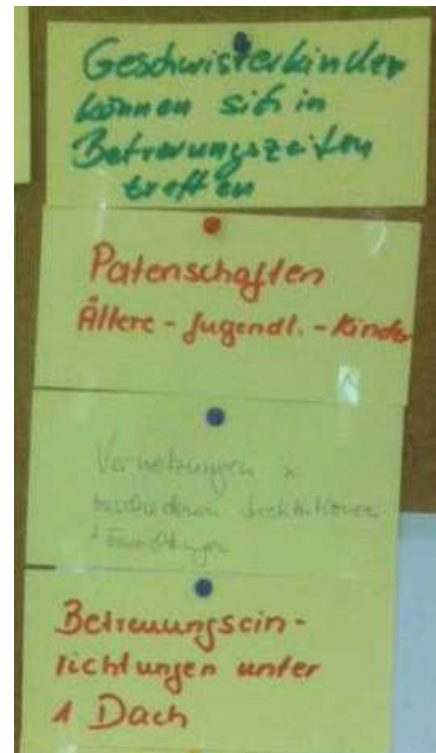 Geschwisterkinder
können sich in
Betreuungszeiten
treffen
Patenschaften
Ältere - Jugendl. - Kinder
Vernetzungen
verschiedenen Institutionen
Betreuungsein-
richtungen unter
1 Dach